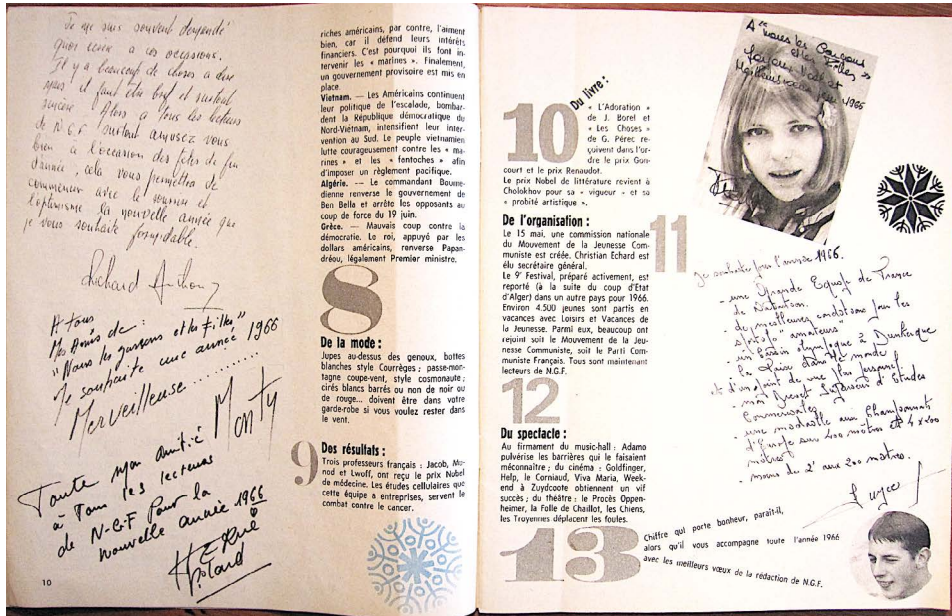 Je me suis souvent demandé
quoi écrire à ces occasions.
Il y a beaucoup de choses à dire
mais il faut être bref et surtout
sincère. Alors à tous les lecteurs
de N.G.F surtout amusez vous
bien à l'occasion des fêtes de fin
d'année, cela vous permettra de
commencer avec le sourire et
l'optimisme la nouvelle année que
je vous souhaite formidable.
Richard Anthony
A tous
Mes Amis de :
"Nous les garçons et les filles"
Je souhaite une année 1966
Merveilleuse..........
Monty
Toute mon amitié
à Tous les lecteurs
de N.G.F Pour la
nouvelle année 1966
10
riches américains, par contre, l'aiment
bien, car il défend leurs intérêts
financiers. C'est pourquoi ils font in-
tervenir les « marines ». Finalement,
un gouvernement provisoire est mis en
place.
Vietnam. — Les Américains continuent
leur politique de l'escalade, bombar-
dent la République démocratique du
Nord-Viétnam, intensifient leur inter-
vention au Sud. Le peuple vietnamien
lutte courageusement contre les « ma-
rines » et les « fantoches » afin
d'imposer un règlement pacifique.
Algérie. — Le commandant Boume-
dienne renverse le gouvernement de
Ben Bella et arrête les opposants au
coup de force du 19 juin.
Grèce. — Mauvais coup contre la
démocratie. Le roi, appuyé par les
dollars américains, renverse Papan-
dréou, légalement Premier ministre.
8
De la mode :
Jupes au-dessus des genoux, bottes
blanches style Courrèges ; passe-mon-
tagne coupe-vent, style cosmonaute ;
cirés blancs barrés ou non de noir ou
de rouge... doivent être dans votre
garde-robe si vous voulez rester dans
le vent.
9
Des résultats :
Trois professeurs français : Jacob, Mo-
nod et Lwoff, ont reçu le prix Nobel
de médecine. Les études cellulaires que
cette équipe a entreprises, servent le
combat contre le cancer.
10
Du livre :
« L'Adoration »
de J. Borel et
« Les Choses »
de G. Pérec re-
çoivent dans l'or-
dre le prix Gon-
court et le prix Renaudot.
Le prix Nobel de littérature revient à
Cholokhov pour sa « vigueur » et sa
« probité artistique ».
11
De l'organisation :
Le 15 mai, une commission nationale
du Mouvement de la Jeunesse Com-
muniste est créée. Christian Echard est
élu secrétaire général.
Le 9e Festival, préparé activement, est
reporté (à la suite du coup d'Etat
d'Alger) dans un autre pays pour 1966.
Environ 4.500 jeunes sont partis en
vacances avec Loisirs et Vacances de
la Jeunesse. Parmi eux, beaucoup ont
rejoint soit le Mouvement de la Jeu-
nesse Communiste, soit le Parti Com-
muniste Français. Tous sont maintenant
lecteurs de N.G.F.
12
Du spectacle :
Au firmament du music-hall : Adamo
pulvérise les barrières qui le faisaient
méconnaître ; du cinéma : Goldfinger,
Help, le Corniaud, Viva Maria, Week-
end à Zuydcoote obtiennent un vif
succès ; du théâtre : le Procès Oppen-
heimer, la Folle de Chaillot, les Chiens,
les Troyennes déplacent les foules.
13
Chiffre qui porte bonheur, paraît-il,
alors qu'il vous accompagne toute l'année 1966
avec les meilleurs vœux de la rédaction de N.G.F.
A "nous les Garçons
et les Filles"
1966
Je souhaite pour l'année 1966.
- une Grande Equipe de France
de Natation.
- de meilleures conditions pour les
sportifs "amateurs"
- un bassin olympique à Dunkerque
- la Paix dans le monde
- mon Brevet Supérieur d'Etudes
Commerciales
- une médaille aux Championnats
d'Europe sur 400 mètres et 4 x 200
mètres
- moins de 2' aux 200 mètres.